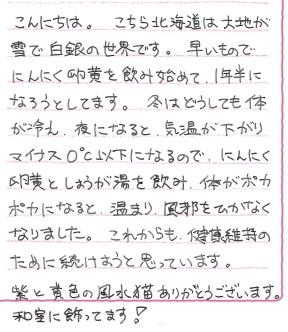 こんにちは。 こちら北海道は大地が
雪で白銀の世界です。 早いもので
にんにく卵黄を飲み始めて、1年半に
なろうとしてます。 冬はどうしても体
が冷え、夜になると、気温が下がり
マイナス0℃以下になるので、にんにく
卵黄としょうが湯を飲み、体がポカ
ポカになると、温まり、風邪をひかなく
なりました。 これからも、健康維持の
ために続けようと思っています。
紫と黄色の風水猫ありがとうございます。
和室に飾ってます!